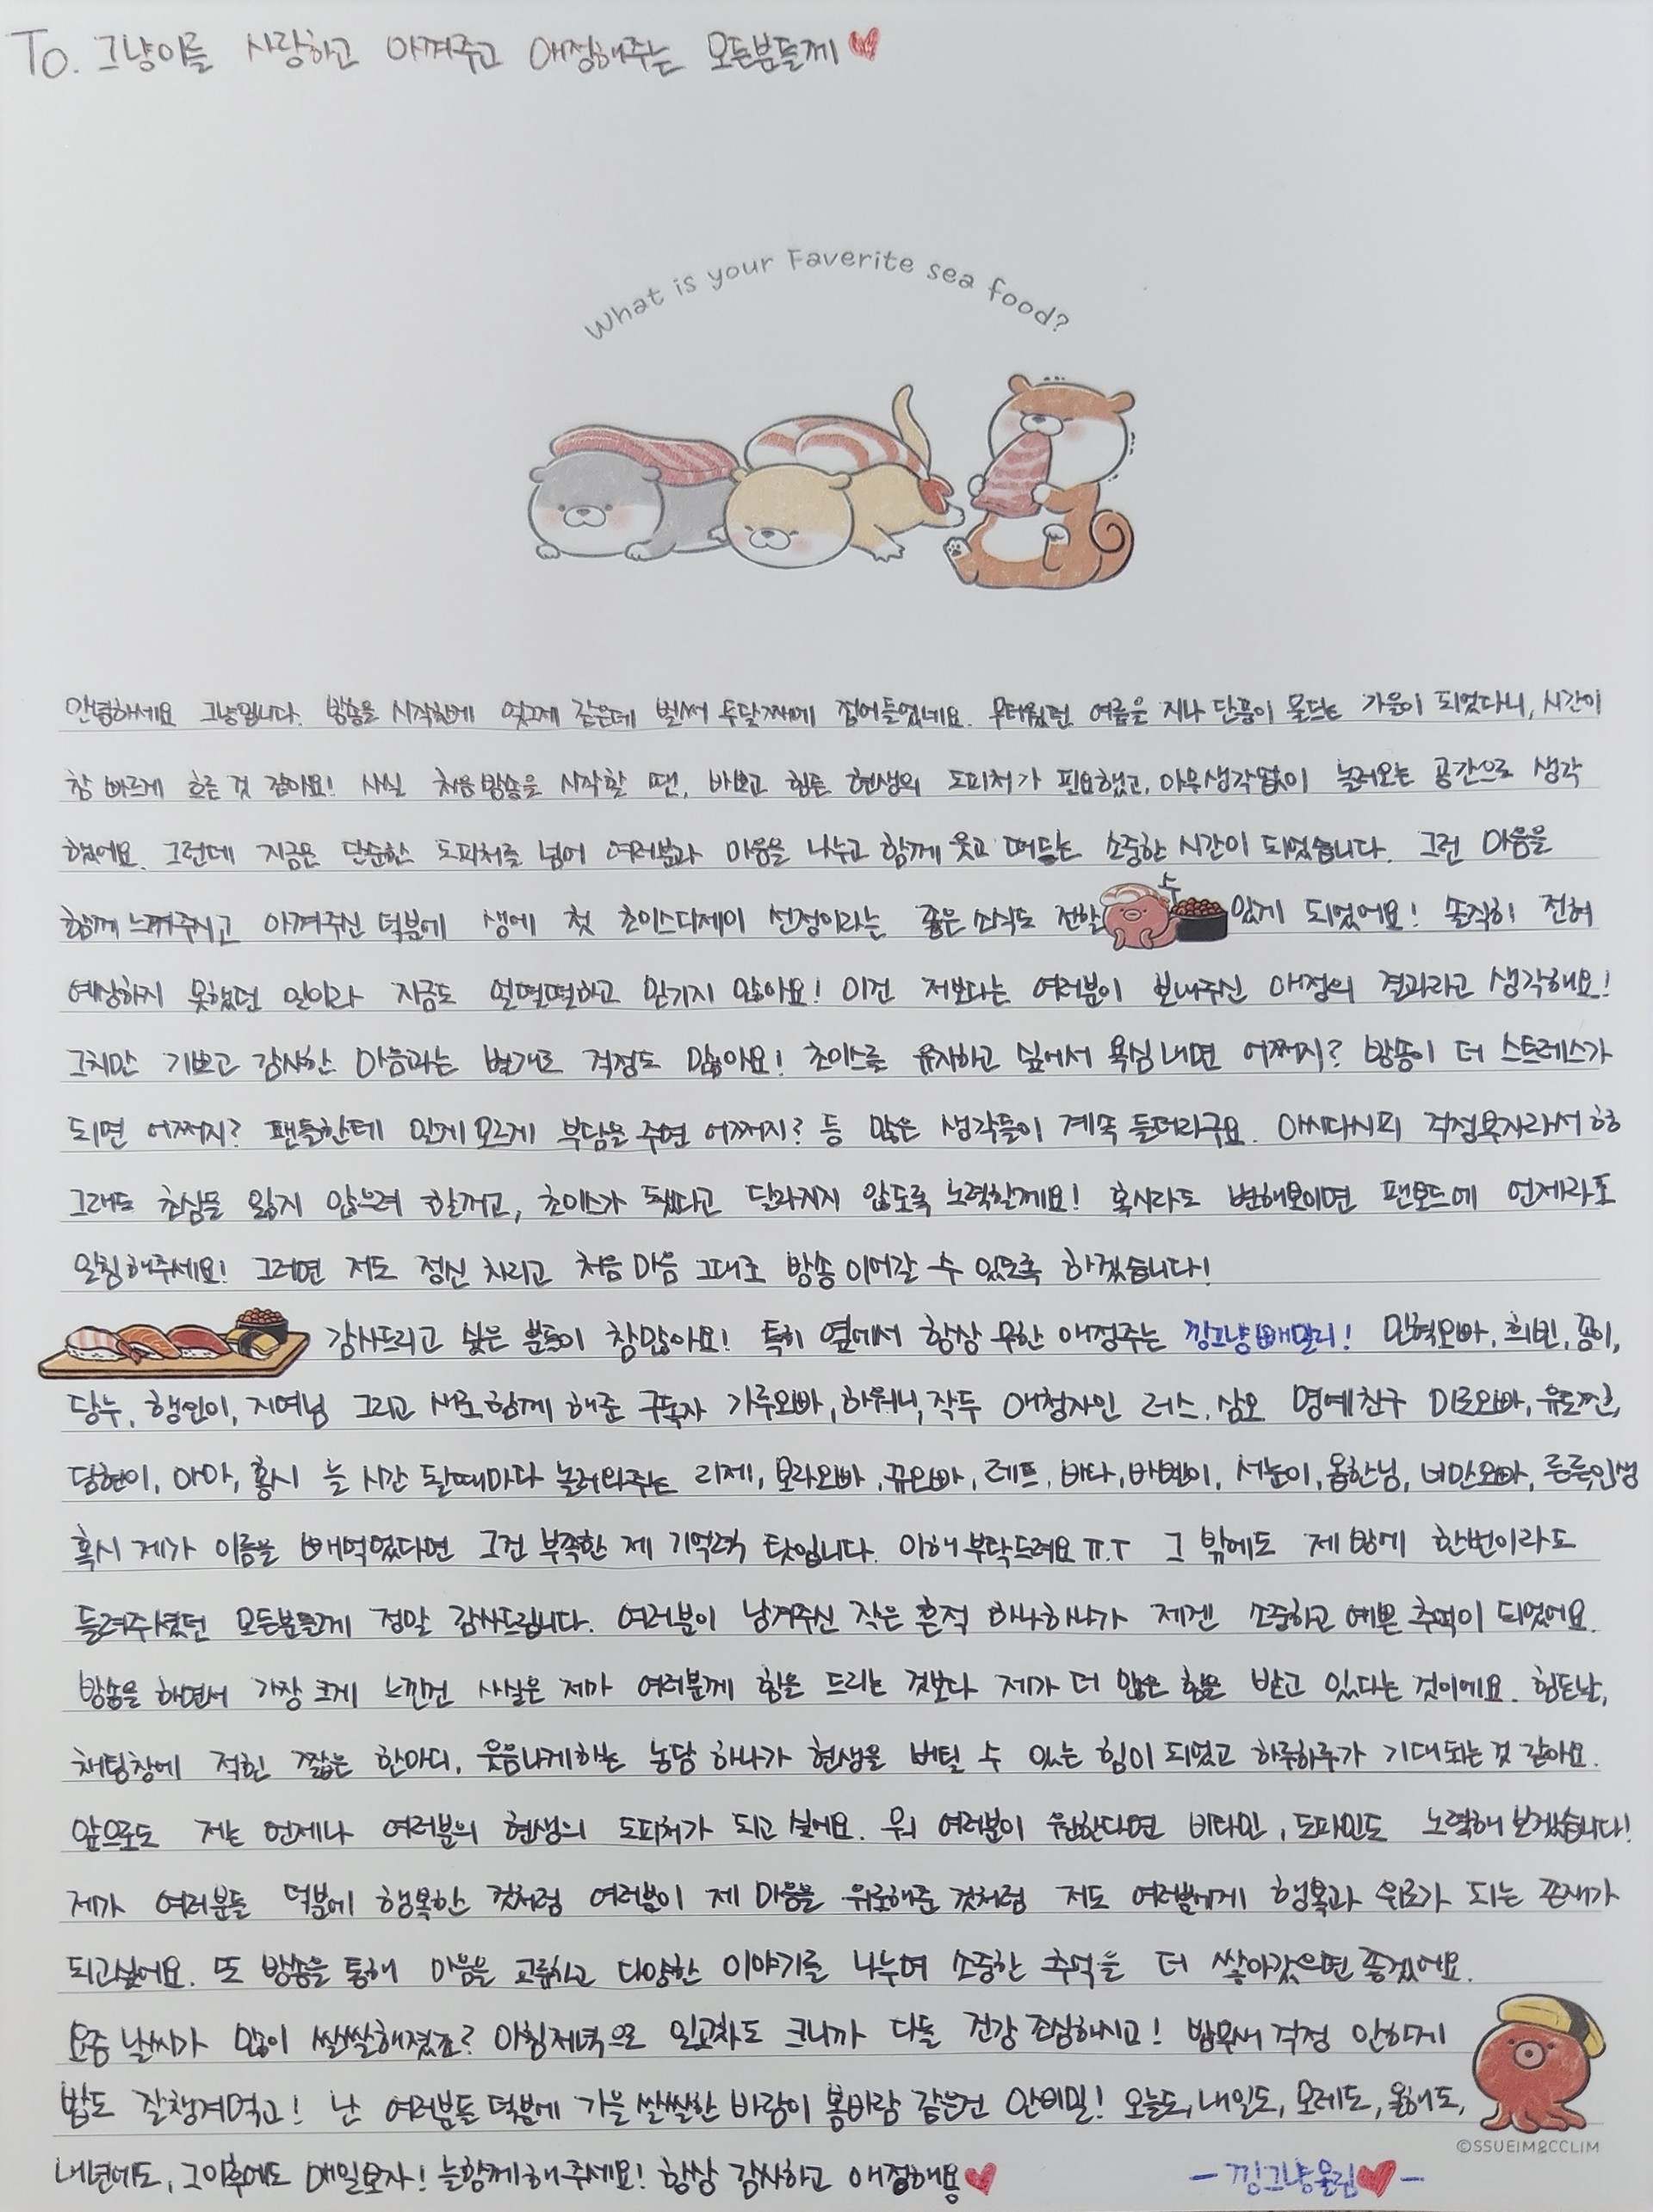 To. 그냥이를 사랑하고 아껴주고 애정해주는 모든분들께
What is your Faverite sea food?
안녕하세요 그냥입니다. 방송을 시작한게 엊그제 같은데 벌써 두달째에 접어들었네요. 무더웠던 여름을 지나 단풍이 물드는 가을이 되었다니, 시간이
참 빠르게 흐른 것 같아요! 사실 처음 방송을 시작할 땐, 바쁘고 힘든 현생의 도피처가 필요했고, 아무생각없이 놀러오는 공간으로 생각
했어요. 그런데 지금은 단순한 도피처를 넘어 여러분과 마음을 나누고 함께 웃고 떠드는 소중한 시간이 되었습니다. 그런 마음을
함께 느껴주시고 아껴주신 덕분에 생에 첫 초이스디제이 선정이라는 좋은 소식도 전할 수 있게 되었어요! 솔직히 전혀
예상하지 못했던 일이라 지금도 얼떨떨하고 믿기지 않아요! 이건 저보다는 여러분이 보내주신 애정의 결과라고 생각해요!
그치만 기쁘고 감사한 마음과는 별개로 걱정도 많아요! 초이스를 유지하고 싶어서 욕심내면 어쩌지? 방송이 더 스트레스가
되면 어쩌지? 팬들한테 알게모르게 부담을 주면 어쩌지? 등 많은 생각들이 계속 들더라구요. 아시다시피 걱정부자라서 ㅎㅎ
그래도 초심을 잃지 않으려 할꺼고, 초이스가 됐다고 달라지지 않도록 노력할께요! 혹시라도 변해보이면 팬보드에 언제라도
일침해주세요! 그러면 저도 정신 차리고 처음 마음 그대로 방송 이어갈 수 있도록 하겠습니다!
감사드리고 싶은 분들이 참많아요! 특히 옆에서 항상 무한 애정주는 낑그냥패밀리! 민혁오빠, 희빈, 꽁이,
당누, 행인이, 지며님 그리고 새로 함께 해준 구독자 가루오빠, 하워니, 작두 애청자인 러스, 삼오 명예친구 미로오빠, 유도찐,
담현이, 아마, 홍시 늘 시간 될때마다 놀러와주는 리제, 보라오빠, 뀨오빠, 레프, 바타, 바벤이, 서눈이, 몸한님, 너만오빠,
혹시 제가 이름을 빼먹었다면 그건 부족한 제 기억력 탓입니다. 이해 부탁드려요 ㅠ.ㅜ 그 밖에도 제 방에 한번이라도
들려주셨던 모든분들께 정말 감사드립니다. 여러분이 남겨주신 작은 흔적 하나하나가 제겐 소중하고 예쁜 추억이 되었어요.
방송을 하면서 가장 크게 느낀건 사실은 제가 여러분께 힘을 드리는 것보다 제가 더 많은 힘을 받고 있다는 것이에요. 힘든날,
채팅창에 적힌 짧은 한마디, 웃음나게하는 농담 하나가 현생을 버틸 수 있는 힘이 되었고 하루하루가 기대되는 것 같아요.
앞으로도 저는 언제나 여러분의 현생의 도피처가 되고 싶어요. 뭐 여러분이 원한다면 비타민, 도파민도 노력해 보겠습니다!
제가 여러분들 덕분에 행복한 것처럼 여러분이 제 마음을 위로해준 것처럼 저도 여러분에게 행복과 위로가 되는 존재가
되고싶어요. 또 방송을 통해 마음을 교류하고 다양한 이야기를 나누며 소중한 추억을 더 쌓아갔으면 좋겠어요.
요즘 날씨가 많이 쌀쌀해졌죠? 아침저녁으로 일교차도 크니까 다들 건강 조심하시고! 밥무새 걱정 안하게
밥도 잘챙겨먹고! 난 여러분들 덕분에 가을 쌀쌀한 바람이 봄바람 같은건 안비밀! 오늘도, 내일도, 모레도, 올해도,
내년에도, 그이후에도 매일보자! 늘함께해주세요! 항상 감사하고 애정해용
- 낑그냥올림 -
©SSUEIM&CCLIM